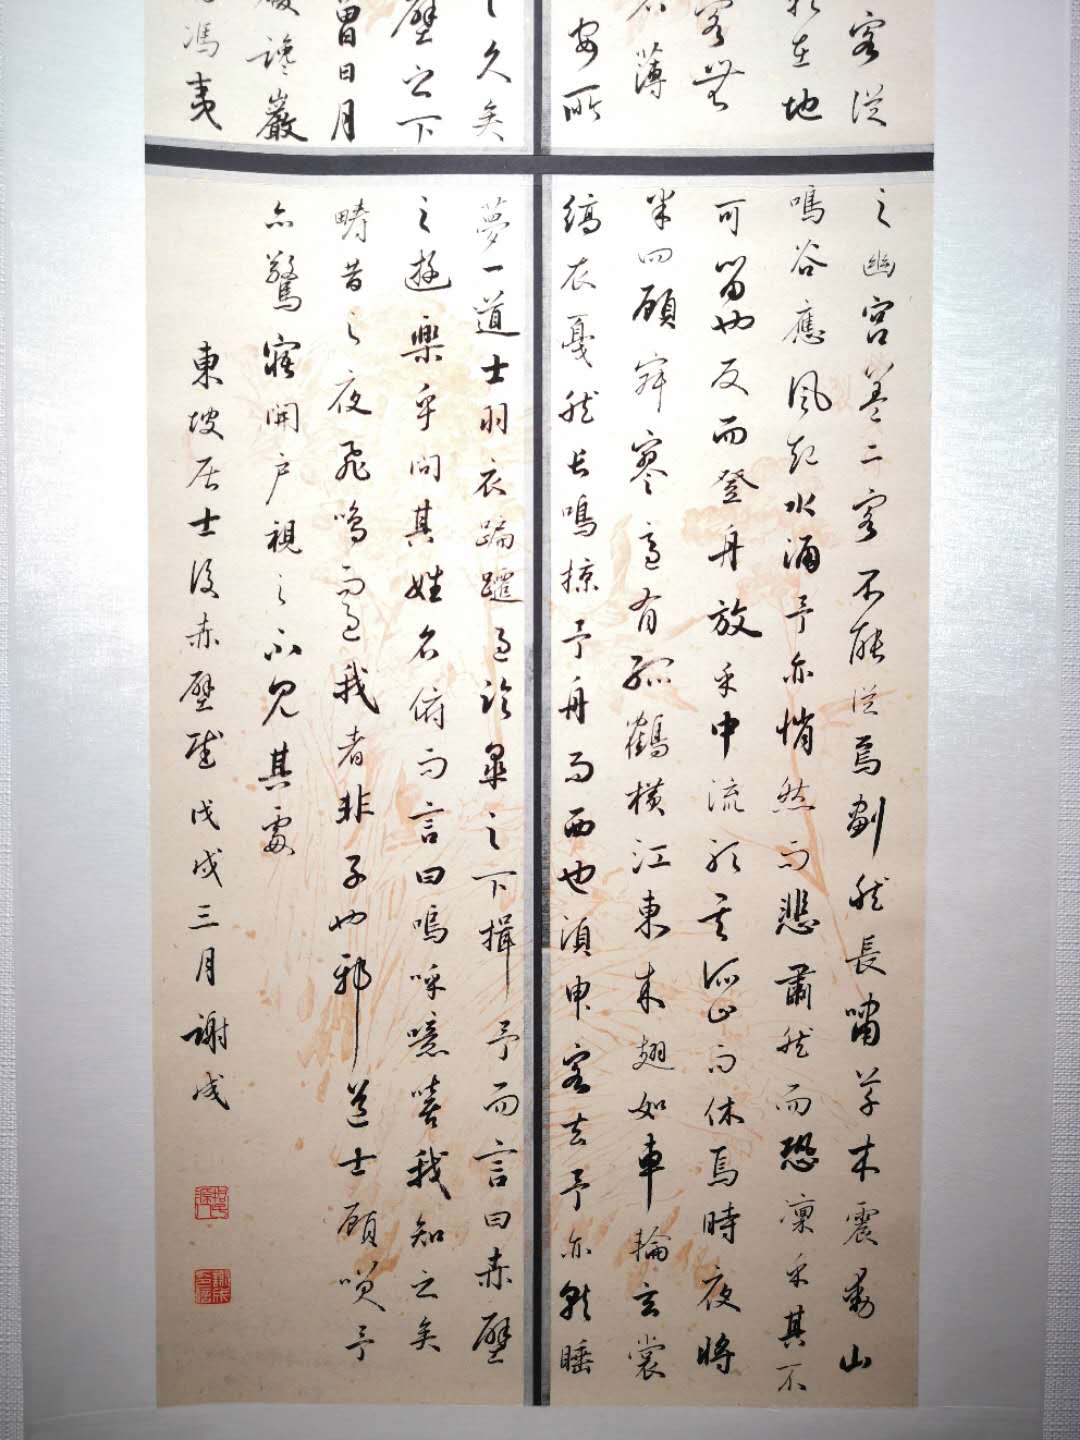 客從
在地
客無
薄
安所
之幽宮蓋二客不能從焉劃然長嘯草木震動山
鳴谷應風起水涌予亦悄然而悲肅然而恐凜乎其不
可留也反而登舟放乎中流聽其所止而休焉時夜將
半四顧寂寥適有孤鶴橫江東來翅如車輪玄裳
縞衣戛然長鳴掠予舟而西也須臾客去予亦就睡
之久矣
壁之下
曾日月
履巉巖
馮夷
夢一道士羽衣蹁躚過臨皋之下揖予而言曰赤壁
之遊樂乎問其姓名俯而言曰嗚呼噫嘻我知之矣
疇昔之夜飛鳴而過我者非子也邪道士顧笑予
亦驚寤開戶視之不見其處
東坡居士後赤壁賦戊戌三月謝成